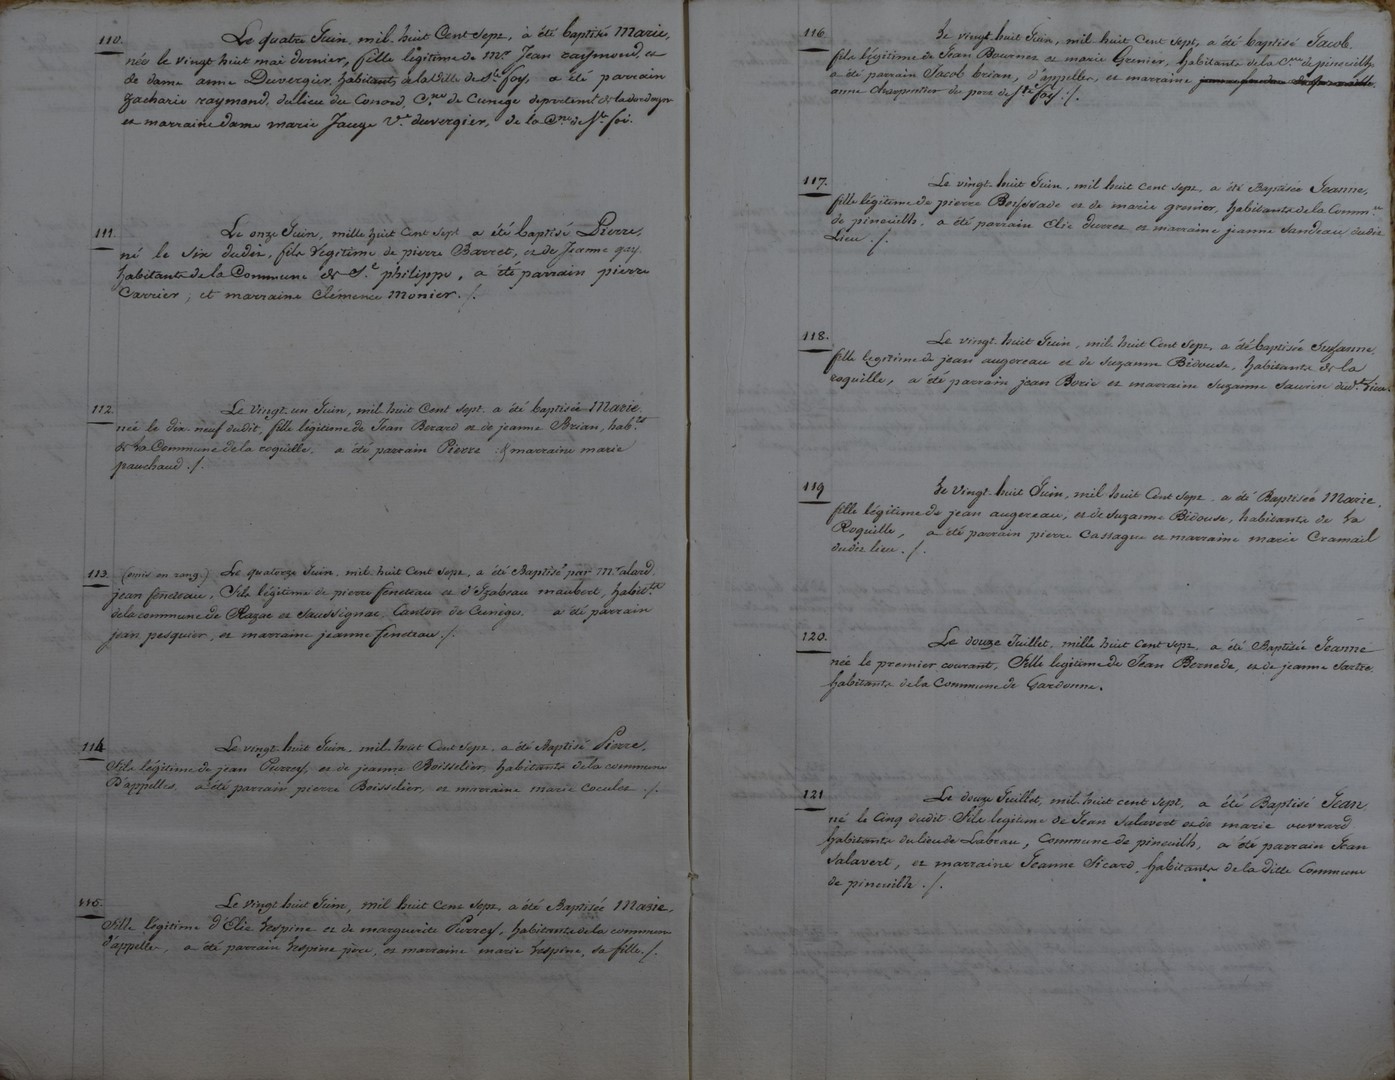 110. Le quatre Juin, mil huit Cent Sept, a été baptisé Marie,
née le vingt huit mai dernier, fille légitime de Mr. Jean raymond, et
de dame anne Duvergier, habitants de la ville de Ste foy, a été parrain
Zacharie raymond, du lieu du Cne de Cunege departemt de la dordogne
et marraine dame marie Jauge Ve duvergier, de la Cne de Ste foi.
111. Le onze Juin, mille huit Cent Sept a été baptisé Pierre,
né le six dudit, fils legitime de pierre Barret, et de Jeanne gay
habitants de la Commune de St philippe, a été parrain pierre
Carrier, et marraine Clémence monier ./.
112. Le Vingt-un Juin, mil huit Cent Sept. a été baptisée Marie
née le dix-neuf dudit, fille légitime de Jean Berard et de jeanne Brian, habts
de la Commune de la roquille, a été parrain Pierre & marraine marie
pauchaud ./.
113. (omis en rang.) Le quatorze Juin mil huit Cent Sept, a été Baptisé par Mr alard
jean feneteau, Fils légitime de pierre feneteau et d'Izabeau maubert, habitts
de la commune de Razac et Saussignac, Canton de Cunèges. a été parrain
jean pesquier, et marraine jeanne feneteau ./.
114. Le vingt huit Juin, mil huit Cent Sept. a été Baptisé Pierre,
Fils légitime de jean Purrey, et de jeanne Boisselier, habitants de la commune
D'appelles, a été parrain pierre Boisselier, et marraine marie ./.
115. Le vingt huit Juin, mil huit Cent Sept. a été Baptisée Marie,
Fille légitime d'Elie Lespine et de marguerite Purrey, habitants de la commune
d'appelle, a été parrain Lespine père, et marraine marie Lespine, sa fille ./.
116. Le vingt huit Juin, mil huit Cent Sept, a été baptisé Jacob.
fils légitime de Jean Bournet et marie Grenier, habitants de la Cne de pineuilh
a été parrain Jacob brian, d'appelles, et marraine
anne Charpentier du port de Ste foy ./.
117. Le vingt huit Juin, mil huit Cent Sept, a été Baptisée Jeanne,
fille légitime de pierre Boyssade et de marie grenier, habitants de la Commne
de pineuilh, a été parrain Elie et marraine jeanne Sandeau dudit
Lieu ./.
118. Le vingt huit Juin, mil huit Cent Sept. a été baptisée Suzanne,
fille legitime de jean augereau et de Suzanne Bidouse, habitants de la
roquille, a été parrain jean Borie et marraine Suzanne Saurin dudt Lieu
119 Le Vingt-huit Juin, mil huit Cent Sept. a été Baptisée Marie,
fille légitime de jean augereau, et de Suzanne Bidouse, habitants de La
Roquille, a été parrain pierre Cassagne et marraine marie Cramail
dudit lieu ./.
120. Le douze Juillet, mille huit cent sept, a été Baptisée Jeanne
née le premier courant, Fille legitime de Jean Bernede, et de jeanne Sartre
habitants de la Commune de Gardonne.
121 Le douze Juillet, mil huit cent sept, a été Baptisé Jean
né le Cinq dudit Fils legitime de Jean Salavert et de marie ouvrard
habitants du lieu de Labeau, Commune de pineuilh, a été parrain Jean
Salavert, et marraine Jeanne Sicard, habitants de la ditte Commune
de pineuilh ./.